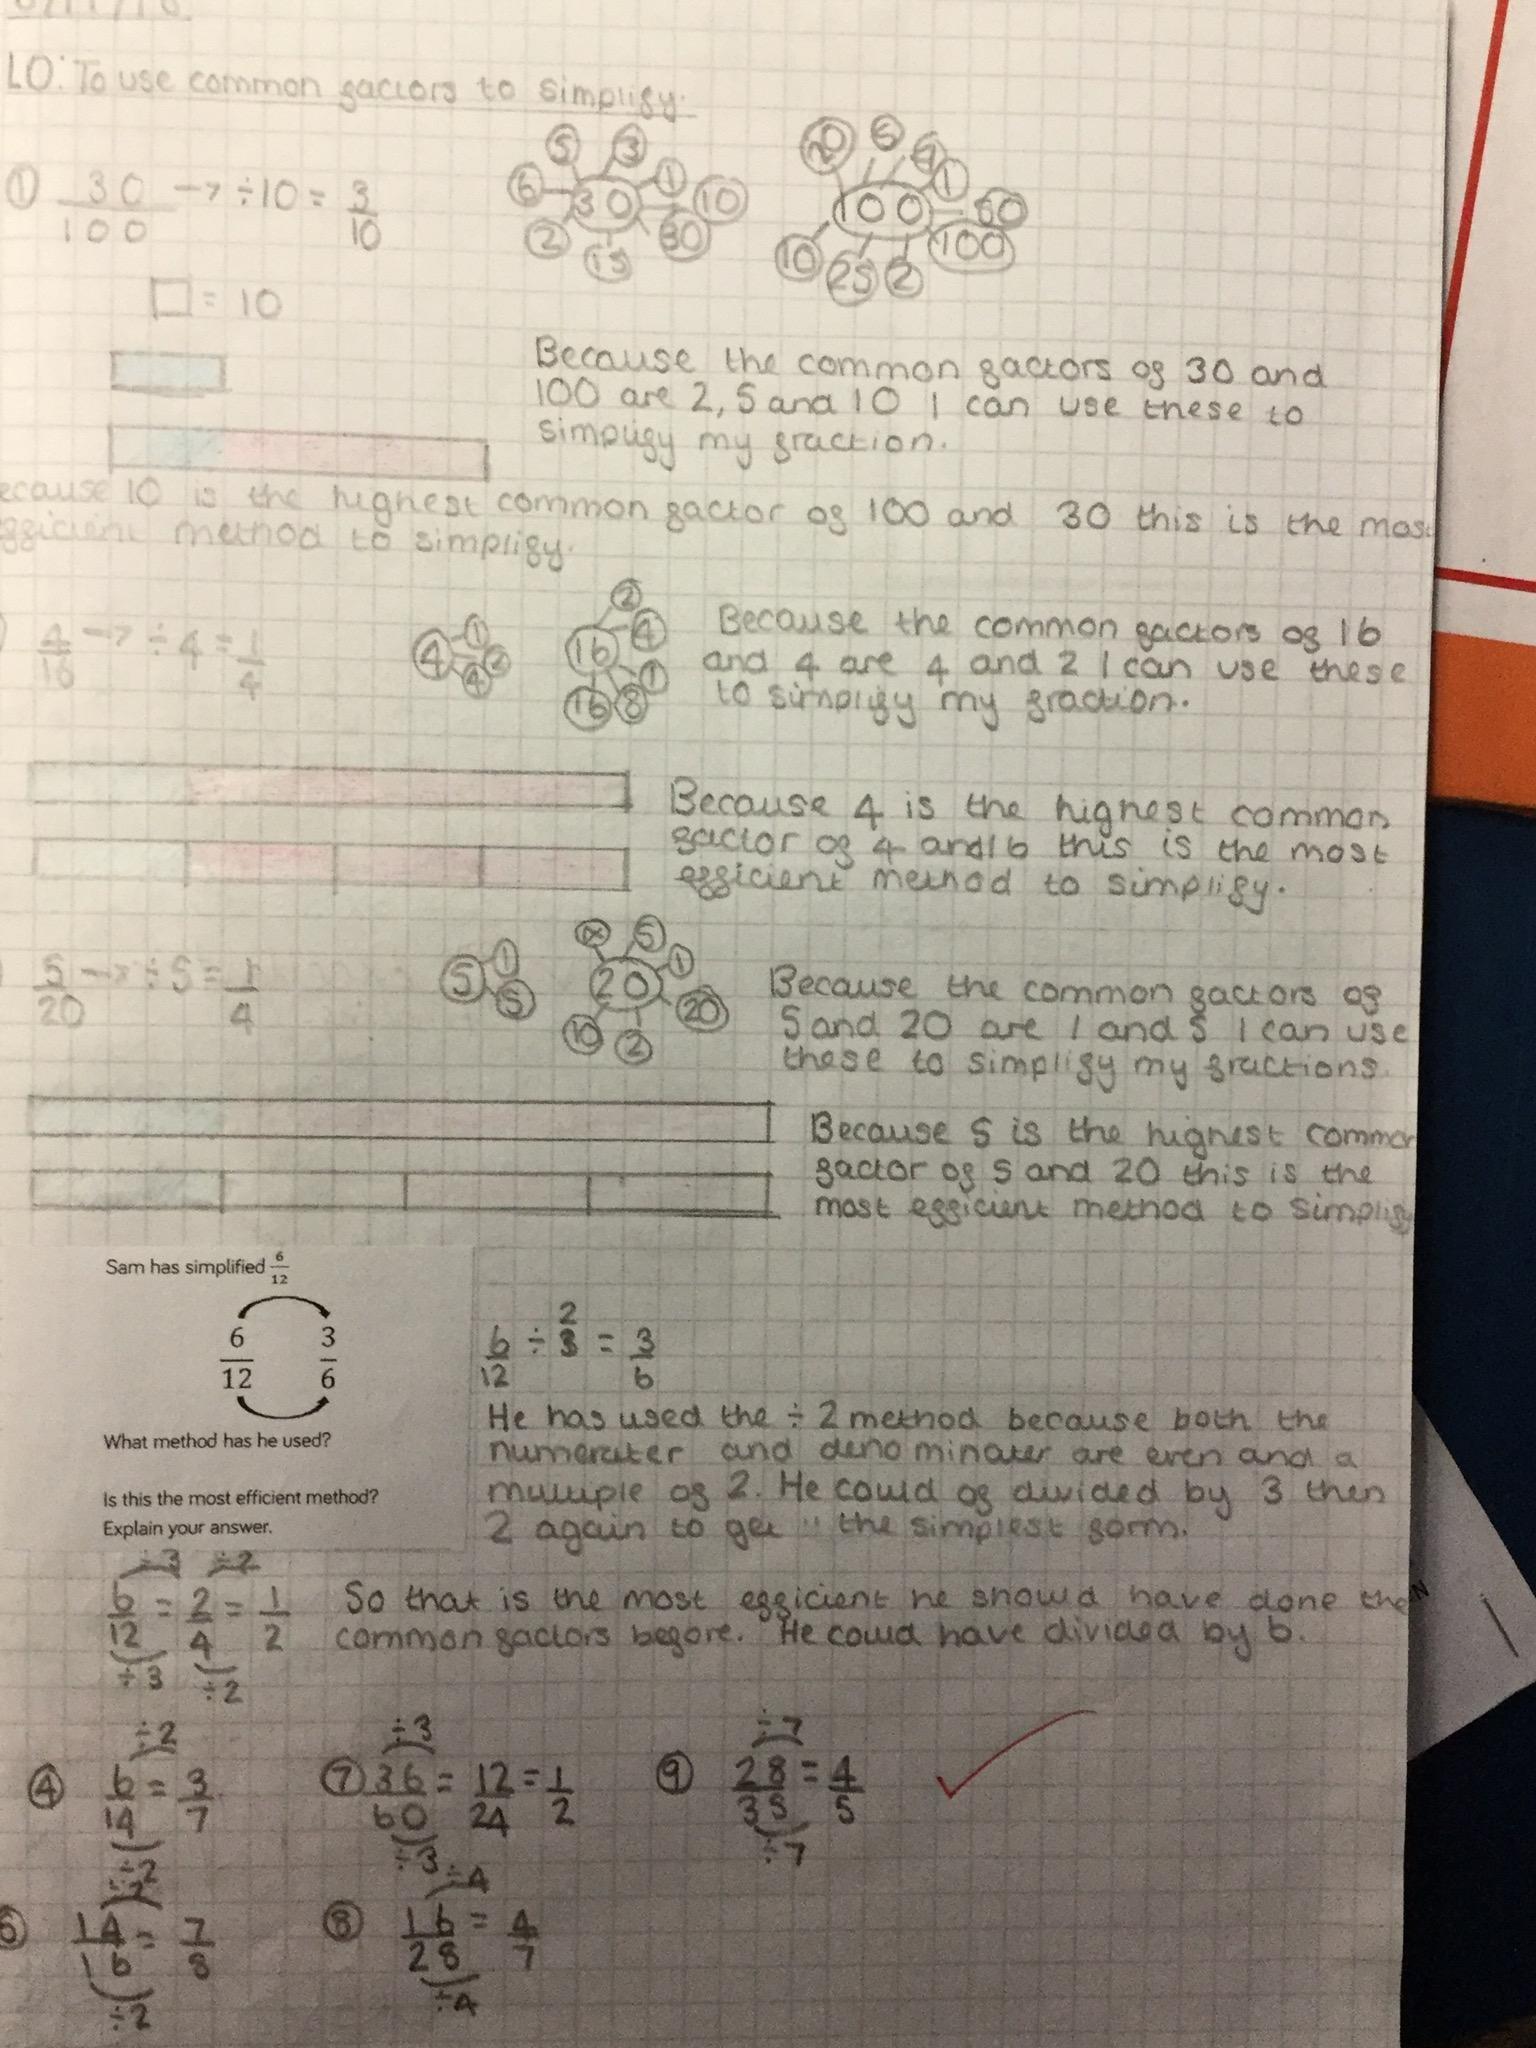 LO: To use common factors to simplify.
① 30/100 → ÷10 = 3/10
5 3 1 10 30 15 2 6 30
20 5 4 1 50 100 2 25 10 100
□ = 10
Because the common factors of 30 and
100 are 2, 5 and 10 I can use these to
simplify my fraction.
ecause 10 is the highest common factor of 100 and 30 this is the most
fficient method to simplify.
4/16 → ÷4 = 1/4
4 1 2 4
16 2 4 1 8 16
Because the common factors of 16
and 4 are 4 and 2 I can use these
to simplify my fraction.
Because 4 is the highest common
factor of 4 and 16 this is the most
efficient method to simplify.
5/20 → ÷5 = 1/4
5 1 5
20 5 1 20 2 10
Because the common factors of
5 and 20 are 1 and 5 I can use
these to simplify my fractions.
Because 5 is the highest common
factor of 5 and 20 this is the
most efficient method to simplify
Sam has simplified 6/12
6/12 3/6
What method has he used?
Is this the most efficient method?
Explain your answer.
6/12 ÷ 2 = 3/6
He has used the ÷ 2 method because both the
numerater and denominater are even and a
multiple of 2. He could of divided by 3 then
2 again to get the simplest form.
÷3 ÷2
6/12 = 2/4 = 1/2
÷3 ÷2
So that is the most efficient he should have done the
common factors before. He could have divided by 6.
÷2
④ 6/14 = 3/7
÷2
÷3
⑦ 36/60 = 12/24 = 1/2
÷3
÷7
⑨ 28/35 = 4/5
÷7
÷2
14/16 = 7/8
÷2
÷4
⑧ 16/28 = 4/7
÷4